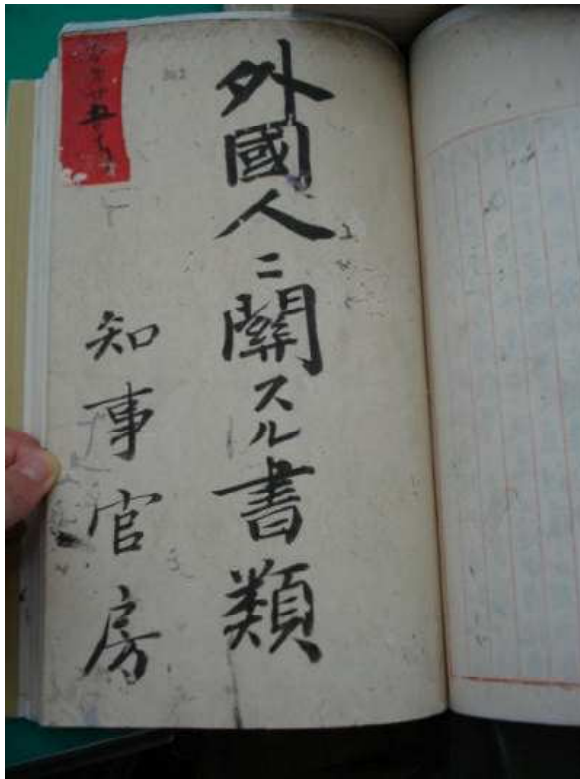 外國人ニ關スル書類
知事官房